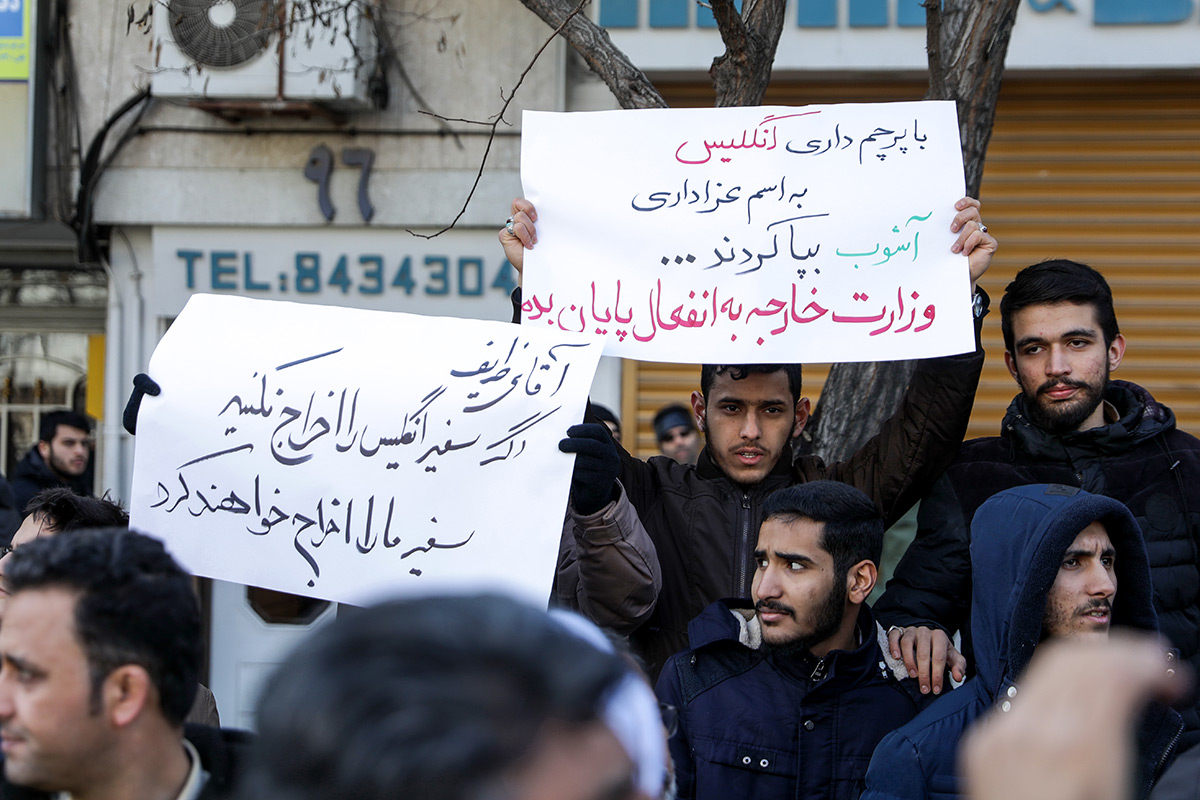 با پرچم داری انگلیس
به اسم عزاداری
آشوب بپا کردند ...
وزارت خارجه به انفعال پایان بده
آقای ظریف
اگر سفیر انگلیس را اخراج نکنید
سفیر ما را اخراج خواهند کرد
۹۶
TEL:843404